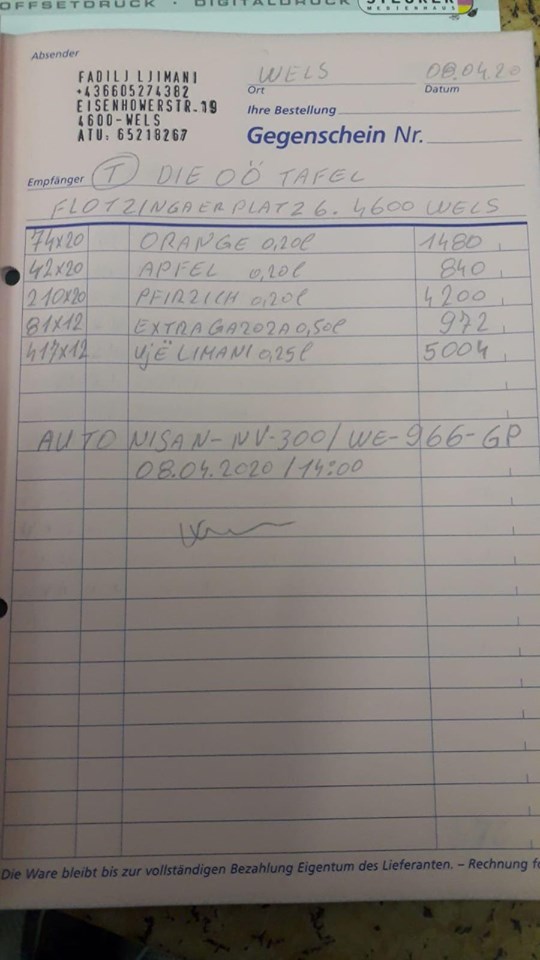 OFFSETDRUCK · DIGITALDRUCK
Absender
FADILJ LJIMANI
+436605274382
EISENHOWERSTR.19
4600-WELS
ATU: 65218267
WELS 08.04.20
Ort Datum
Ihre Bestellung
Gegenschein Nr.
Empfänger T DIE OÖ TAFEL
FLOTZINGAERPLATZ 6. 4600 WELS
74x20 ORANGE 0,20l 1480
42x20 APFEL 0,20l 840
210x20 PFIRZICH 0,20l 4200
81x12 EXTRA GAZOZA 0,50l 972
417x12 UjË LIMANI 0,25l 5004
AUTO NISAN-NV-300/WE-966-GP
08.04.2020/14:00
Die Ware bleibt bis zur vollständigen Bezahlung Eigentum des Lieferanten. – Rechnung fo